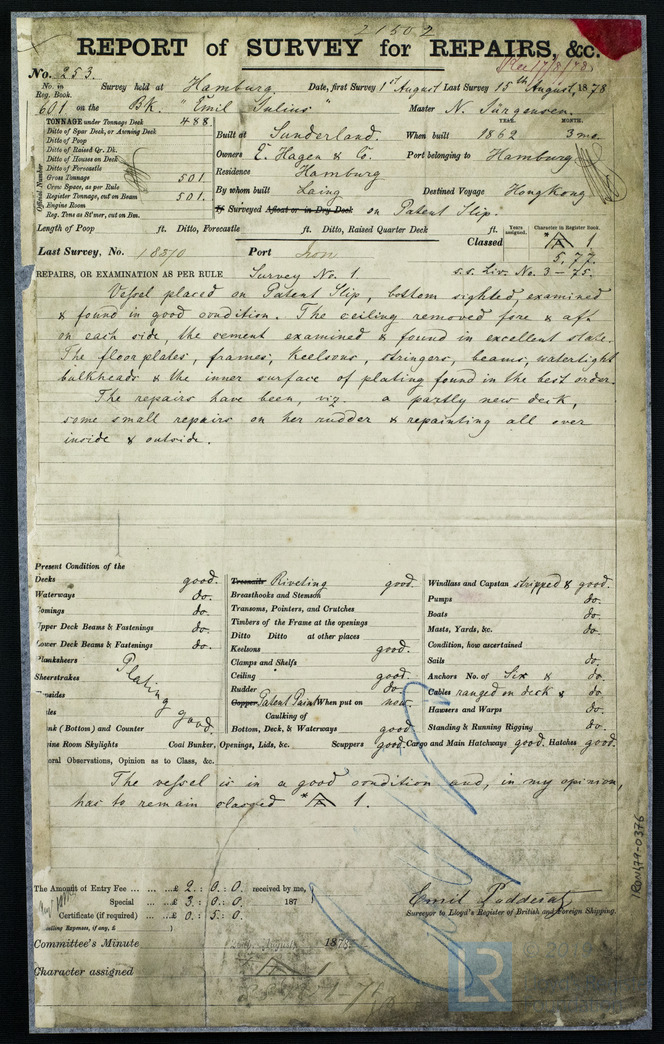 21502
REPORT of SURVEY for REPAIRS, &c.
Rec 17/8/78
No. 253.
No. in Reg. Book. Survey held at Hamburg Date, first Survey 1st August Last Survey 15th August, 1878
601 on the Bk. "Emil Julius" Master N. Jürgensen.
TONNAGE under Tonnage Deck 488
Ditto of Spar Deck, or Awning Deck
Ditto of Poop
Ditto of Raised Qr. Dk.
Ditto of Houses on Deck
Ditto of Forecastle
Gross Tonnage 501.
Crew Space, as per Rule
Register Tonnage, cut on Beam 501.
Engine Room
Reg. Tons as St'mer, cut on Bm.
Official Number
YEAR. MONTH.
Built at Sunderland. When built 1862 3 mo.
Owners E. Hagen & Co. Port belonging to Hamburg
Residence Hamburg
By whom built Laing Destined Voyage HongKong
If Surveyed Afloat or in Dry Dock on Patent Slip.
Length of Poop ft. Ditto, Forecastle ft. Ditto, Raised Quarter Deck ft.
Years assigned. Character in Register Book.
Classed * A 1
5.77.
Last Survey, No. 18370 Port Iron
REPAIRS, OR EXAMINATION AS PER RULE Survey No. 1. s.s. Liv. No. 3-75.
Vessel placed on Patent Slip, bottom sighted, examined
& found in good condition. The ceiling removed fore & aft
on each side, the cement examined & found in excellent state.
The floorplates, frames, keelsons, stringers, beams, watertight
bulkheads & the inner surface of plating found in the best order.
The repairs have been, viz. a partly new deck,
some small repairs on her rudder & repainting all over
inside & outside.
Present Condition of the
Decks good.
Waterways do.
Comings do.
Upper Deck Beams & Fastenings do.
Lower Deck Beams & Fastenings do.
Planksheers
Sheerstrakes
Plating good.
nk (Bottom) and Counter
Treenails Riveting good.
Breasthooks and Stemson
Transoms, Pointers, and Crutches
Timbers of the Frame at the openings
Ditto Ditto at other places
Keelsons good.
Clamps and Shelfs
Ceiling good.
Rudder do.
Copper Patent Paint When put on new.
Caulking of
Bottom, Deck, & Waterways good
Windlass and Capstan stripped & good.
Pumps do.
Boats do.
Masts, Yards, &c. do.
Condition, how ascertained
Sails do.
Anchors No. of Six & do.
Cables ranged on deck & do.
Hawsers and Warps do.
Standing & Running Rigging do.
ine Room Skylights Coal Bunker, Openings, Lids, &c. Scuppers good. Cargo and Main Hatchways good. Hatches good.
eral Observations, Opinion as to Class, &c.
The vessel is in a good condition and, in my opinion,
has to remain classed * A 1.
The Amount of Entry Fee ... £ 2 : 0 : 0. received by me,
Special ... £ 3 : 0 : 0. 187
Certificate (if required) ... £ 0 : 5 : 0.
elling Expenses, if any, £ )
Emil Padderatz
Surveyor to Lloyd's Register of British and Foreign Shipping.
Committee's Minute August 187
Character assigned A 1
IRON479-0376
LR